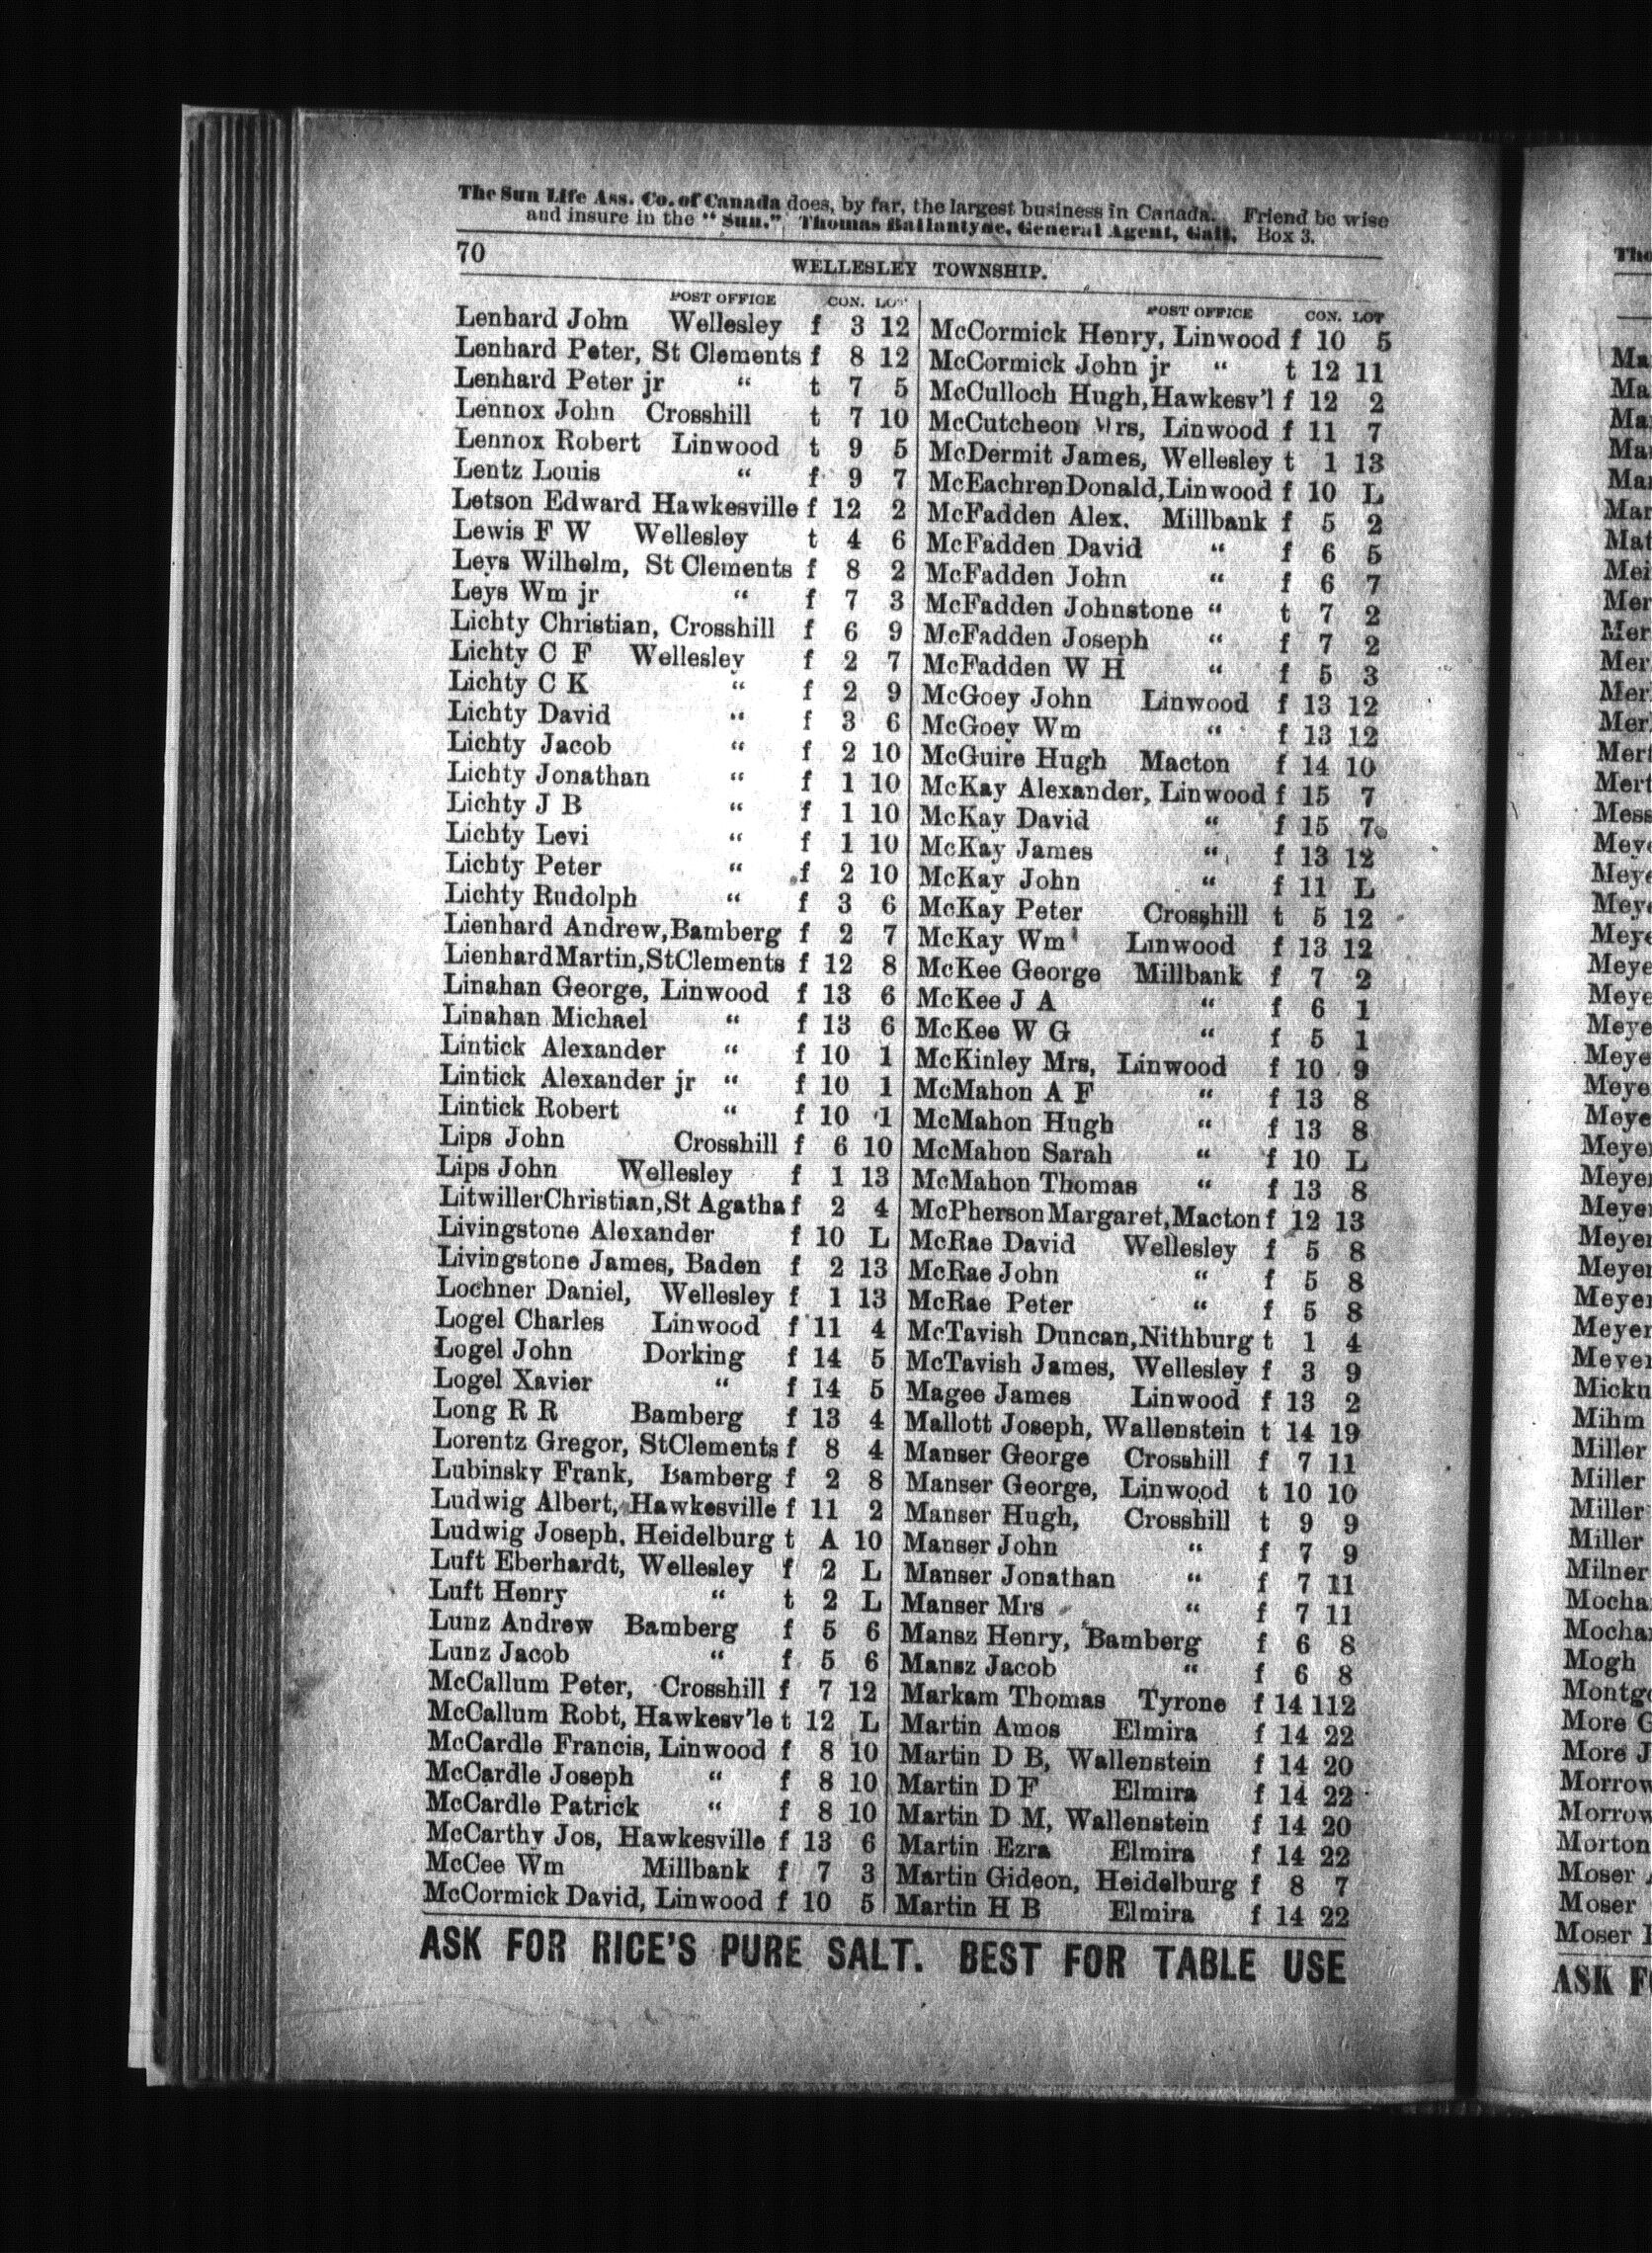 The Sun Life Ass. Co. of Canada does, by far, the largest business in Canada. Friend be wise
and insure in the "Sun." Thomas Ballantyne, General Agent, Galt, Box 3.
70
WELLESLEY TOWNSHIP.
POST OFFICE CON. LOT
Lenhard John Wellesley f 3 12
Lenhard Peter, St Clements f 8 12
Lenhard Peter jr “ t 7 5
Lennox John Crosshill t 7 10
Lennox Robert Linwood t 9 5
Lentz Louis “ f 9 7
Letson Edward Hawkesville f 12 2
Lewis F W Wellesley t 4 6
Leys Wilhelm, St Clements f 8 2
Leys Wm jr “ f 7 3
Lichty Christian, Crosshill f 6 9
Lichty C F Wellesley f 2 7
Lichty C K “ f 2 9
Lichty David “ f 3 6
Lichty Jacob “ f 2 10
Lichty Jonathan “ f 1 10
Lichty J B “ f 1 10
Lichty Levi “ f 1 10
Lichty Peter “ f 2 10
Lichty Rudolph “ f 3 6
Lienhard Andrew, Bamberg f 2 7
Lienhard Martin, St Clements f 12 8
Linahan George, Linwood f 13 6
Linahan Michael “ f 13 6
Lintick Alexander “ f 10 1
Lintick Alexander jr “ f 10 1
Lintick Robert “ f 10 1
Lips John Crosshill f 6 10
Lips John Wellesley f 1 13
Litwiller Christian, St Agatha f 2 4
Livingstone Alexander f 10 L
Livingstone James, Baden f 2 13
Lochner Daniel, Wellesley f 1 13
Logel Charles Linwood f 11 4
Logel John Dorking f 14 5
Logel Xavier “ f 14 5
Long R R Bamberg f 13 4
Lorentz Gregor, St Clements f 8 4
Lubinsky Frank, Bamberg f 2 8
Ludwig Albert, Hawkesville f 11 2
Ludwig Joseph, Heidelburg t A 10
Luft Eberhardt, Wellesley f 2 L
Luft Henry “ t 2 L
Lunz Andrew Bamberg f 5 6
Lunz Jacob “ f 5 6
McCallum Peter, Crosshill f 7 12
McCallum Robt, Hawkesv'le t 12 L
McCardle Francis, Linwood f 8 10
McCardle Joseph “ f 8 10
McCardle Patrick “ f 8 10
McCarthy Jos, Hawkesville f 13 6
McCee Wm Millbank f 7 3
McCormick David, Linwood f 10 5
POST OFFICE CON. LOT
McCormick Henry, Linwood f 10 5
McCormick John jr “ t 12 11
McCulloch Hugh, Hawkesv'l f 12 2
McCutcheon Mrs, Linwood f 11 7
McDermit James, Wellesley t 1 13
McEachren Donald, Linwood f 10 L
McFadden Alex. Millbank f 5 2
McFadden David “ f 6 5
McFadden John “ f 6 7
McFadden Johnstone “ t 7 2
McFadden Joseph “ f 7 2
McFadden W H “ f 5 3
McGoey John Linwood f 13 12
McGoey Wm “ f 13 12
McGuire Hugh Macton f 14 10
McKay Alexander, Linwood f 15 7
McKay David “ f 15 7
McKay James “ f 13 12
McKay John “ f 11 L
McKay Peter Crosshill t 5 12
McKay Wm Linwood f 13 12
McKee George Millbank f 7 2
McKee J A “ f 6 1
McKee W G “ f 5 1
McKinley Mrs, Linwood f 10 9
McMahon A F “ f 13 8
McMahon Hugh “ f 13 8
McMahon Sarah “ f 10 L
McMahon Thomas “ f 13 8
McPherson Margaret, Macton f 12 13
McRae David Wellesley f 5 8
McRae John “ f 5 8
McRae Peter “ f 5 8
McTavish Duncan, Nithburg t 1 4
McTavish James, Wellesley f 3 9
Magee James Linwood f 13 2
Mallott Joseph, Wallenstein t 14 19
Manser George Crosshill f 7 11
Manser George, Linwood t 10 10
Manser Hugh, Crosshill t 9 9
Manser John “ f 7 9
Manser Jonathan “ f 7 11
Manser Mrs “ f 7 11
Mansz Henry, Bamberg f 6 8
Mansz Jacob “ f 6 8
Markam Thomas Tyrone f 14 112
Martin Amos Elmira f 14 22
Martin D B, Wallenstein f 14 20
Martin D F Elmira f 14 22
Martin D M, Wallenstein f 14 20
Martin Ezra Elmira f 14 22
Martin Gideon, Heidelburg f 8 7
Martin H B Elmira f 14 22
ASK FOR RICE'S PURE SALT. BEST FOR TABLE USE
Mihm
Miller
Miller
Miller
Miller
Milner
Mogh
Morton
Moser
Moser
Moser
ASK